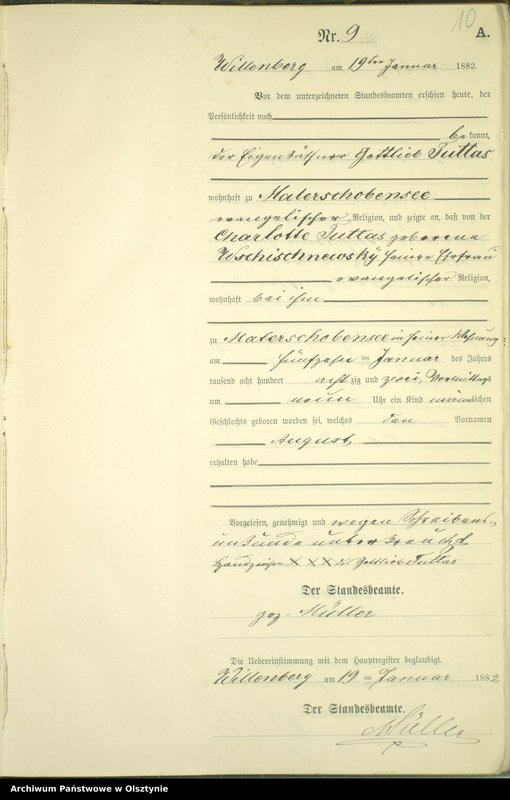 10
Nr. 9 A.
Willenberg am 19ten Januar 1882.
Vor dem unterzeichneten Standesbeamten erschien heute, der
Persönlichkeit nach
bekannt,
der Eigenkäthner Gottlieb Tuttas
wohnhaft zu Materschobensee
evangelischer Religion, und zeigte an, daß von der
Charlotte Tuttas geborene
Wschischnewsky seiner Ehefrau
evangelischer Religion,
wohnhaft bei ihm
zu Materschobensee in seiner Wohnung
am fünfzehn ten Januar des Jahres
tausend acht hundert achtzig und zwei, Vormittags
um neun Uhr ein Kind männlichen
Geschlechts geboren worden sei, welches den Vornamen
August
erhalten habe
Vorgelesen, genehmigt und wegen Schreibens-
unkunde unterkreuzt
Handzeichen X X X des Gottlieb Tuttas
Der Standesbeamte.
gez. Müller
Die Uebereinstimmung mit dem Hauptregister beglaubigt.
Willenberg am 19 ten Januar 1882
Der Standesbeamte.
Müller
Archiwum Państwowe w Olsztynie